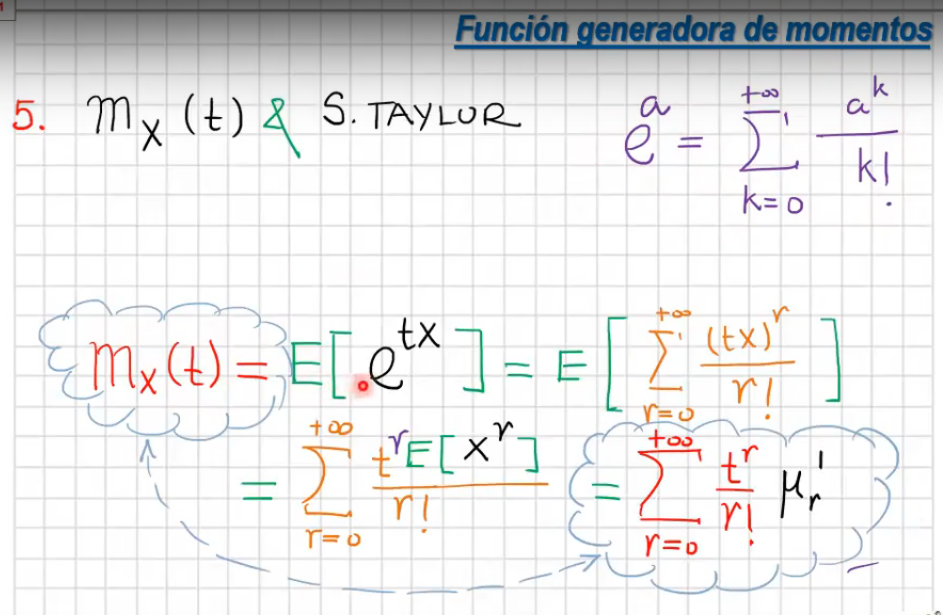 Función generadora de momentos
5. m_X (t) & S. TAYLOR
e^a = \sum_{k=0}^{+∞} \frac{a^k}{k!}
m_X(t) = E[e^{tX}] = E[\sum_{r=0}^{+∞} \frac{(tX)^r}{r!}]
= \sum_{r=0}^{+∞} \frac{t^r E[X^r]}{r!} = \sum_{r=0}^{+∞} \frac{t^r}{r!} μ'_r